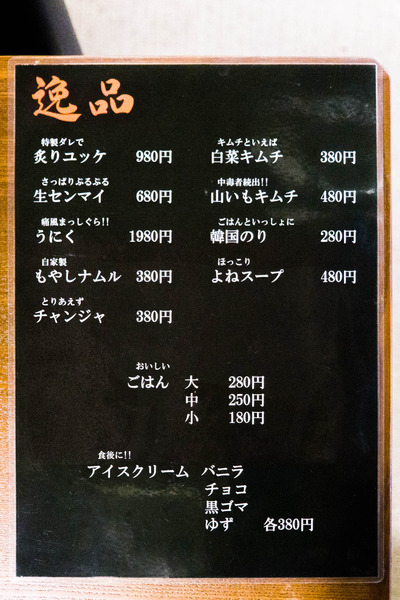 逸品
特製ダレで
炙りユッケ 980円
さっぱりぷるぷる
生センマイ 680円
痛風まっしぐら!!
うにく 1980円
自家製
もやしナムル 380円
とりあえず
チャンジャ 380円
キムチといえば
白菜キムチ 380円
中毒者続出!!
山いもキムチ 480円
ごはんといっしょに
韓国のり 280円
ほっこり
よねスープ 480円
おいしい
ごはん 大 280円
中 250円
小 180円
食後に!!
アイスクリーム バニラ
チョコ
黒ゴマ
ゆず 各380円